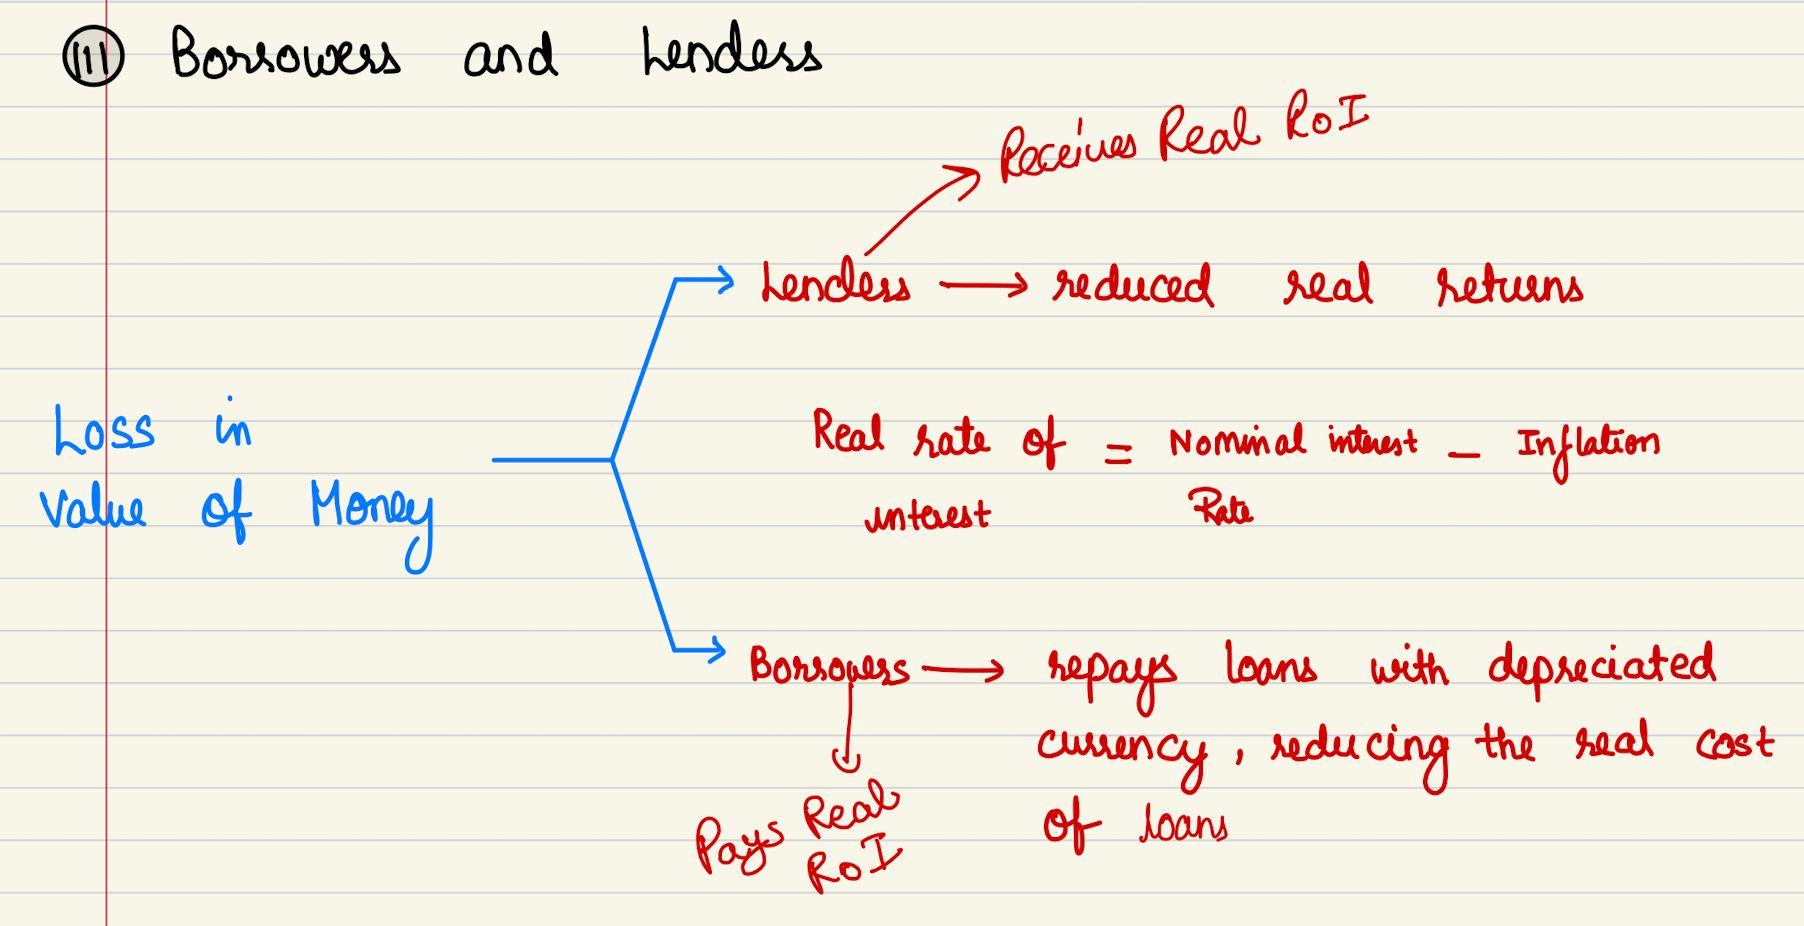 (III) Borrowers and Lenders
Receives Real RoI
Lenders → reduced real returns
Loss in
Value of Money
Real rate of = Nominal interest - Inflation
interest Rate
Borrowers → repays loans with depreciated
currency, reducing the real cost
of loans
Pays Real
RoI